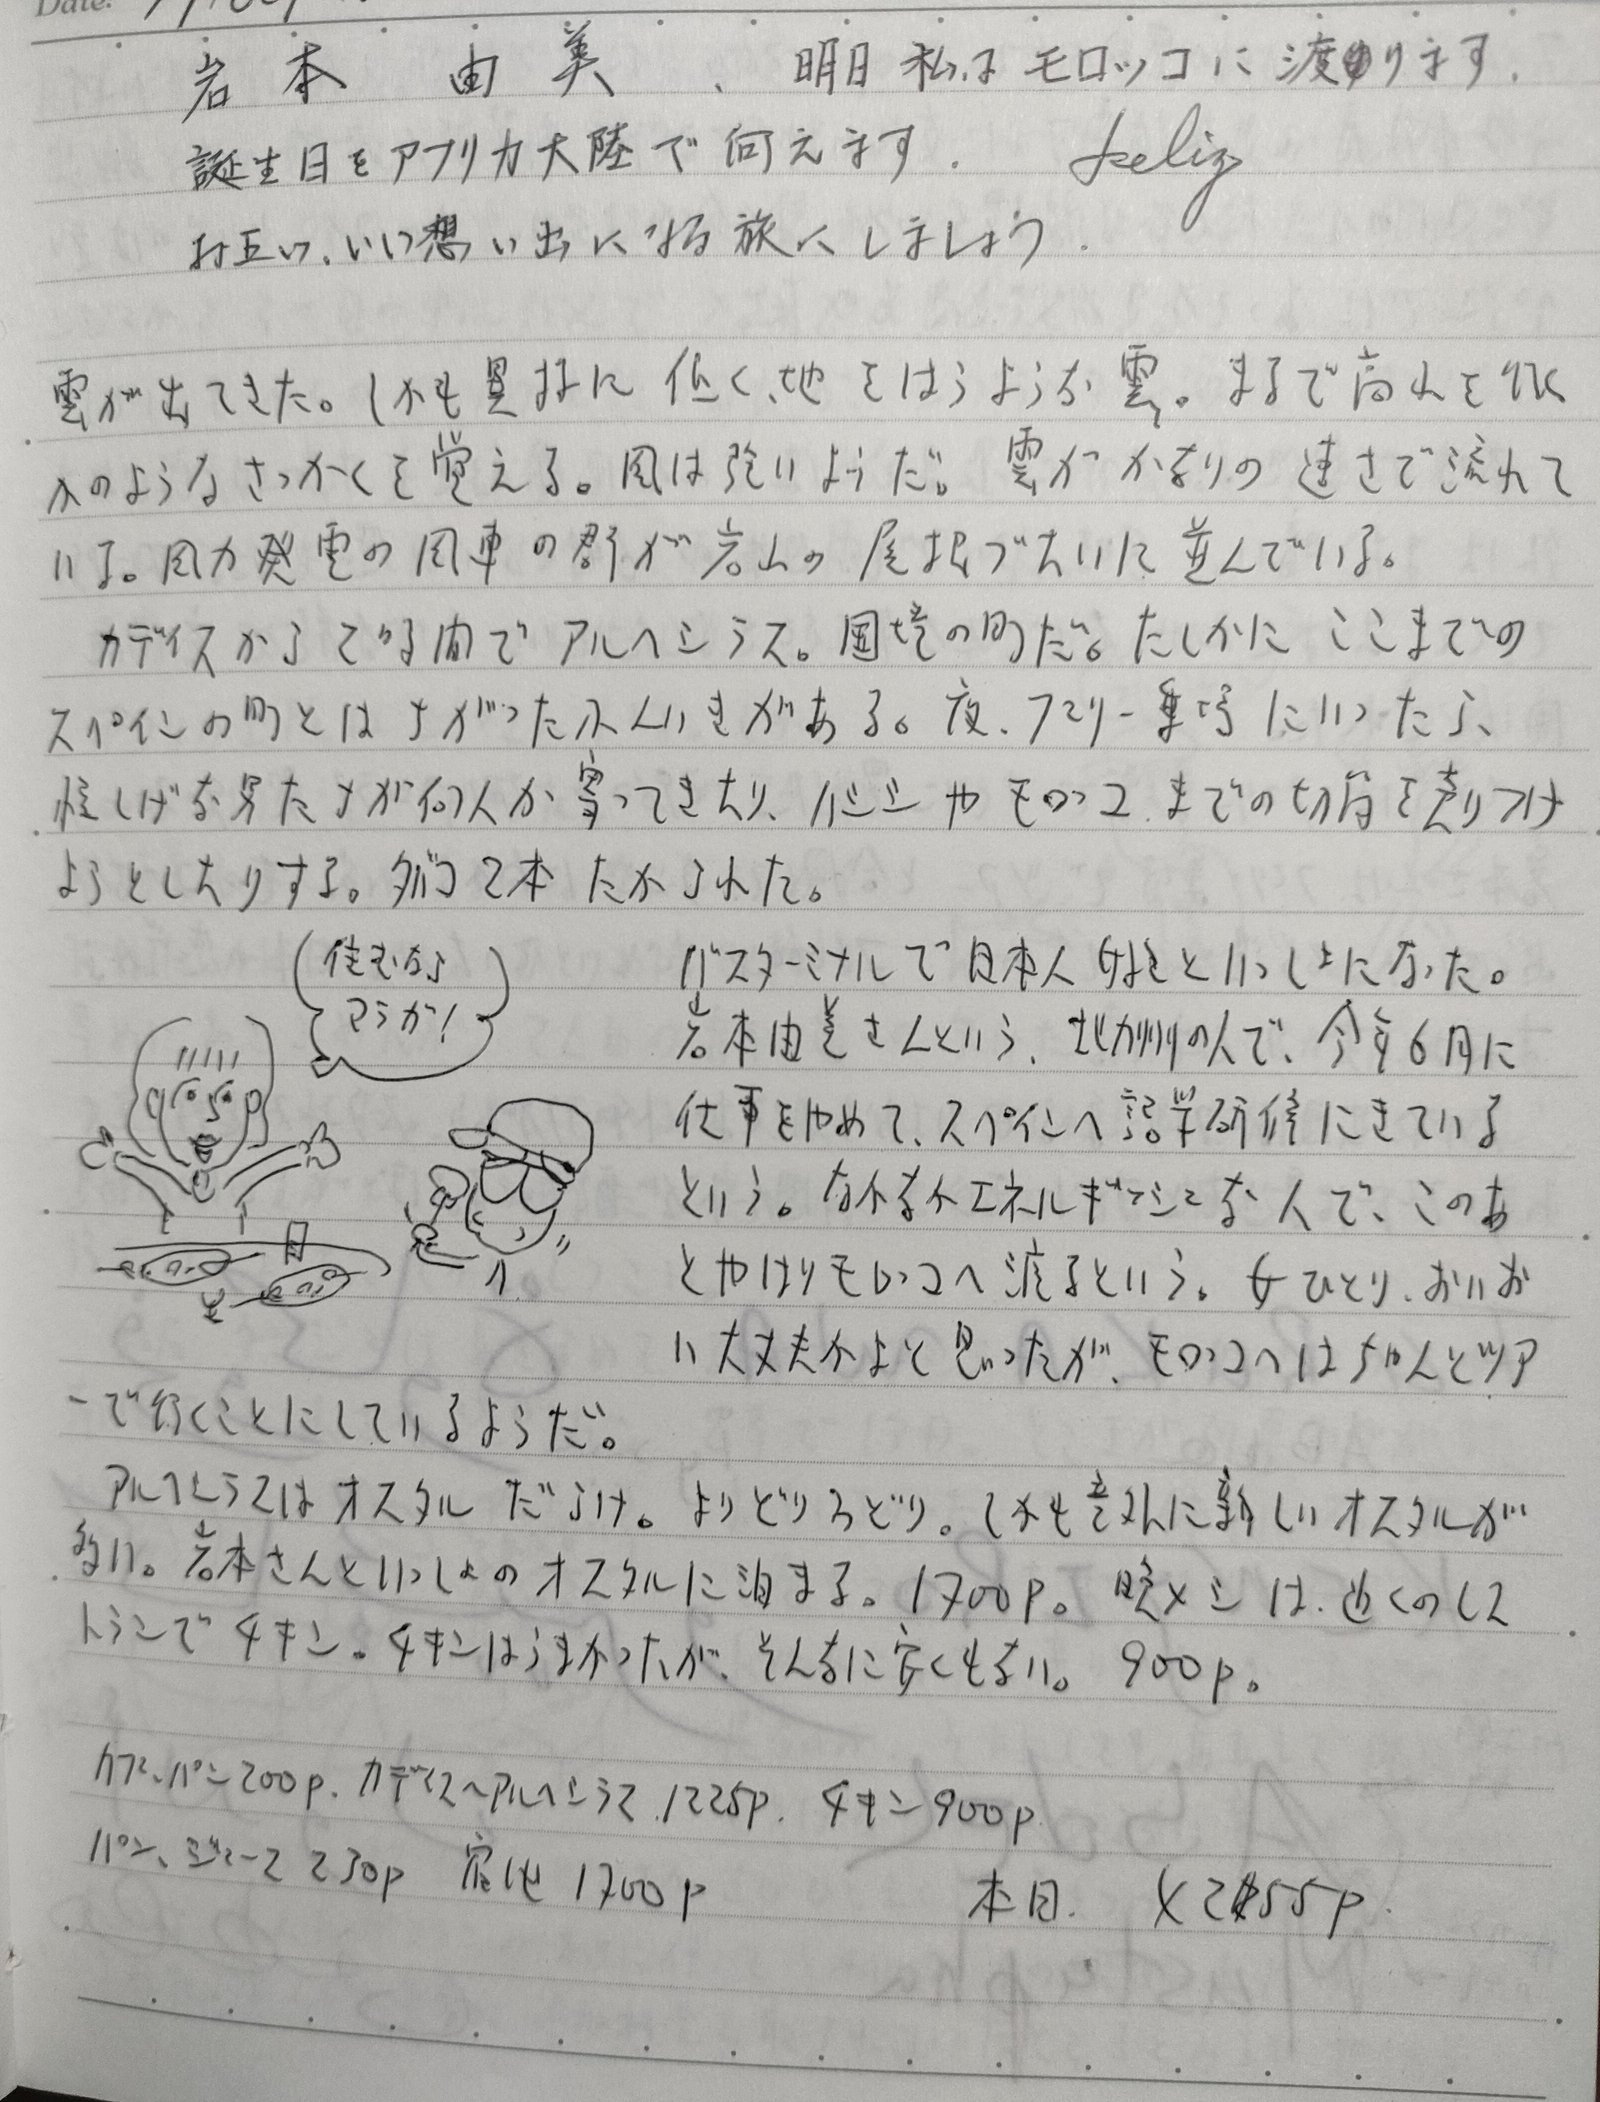 Date:
岩本 由美、明日私はモロッコに渡ります.
誕生日をアフリカ大陸で何えます. feliz
お互い、いい想い出になる旅にしましょう.
雲が出てきた。しかも異様に低く、地をはうような雲。まるで高山を
かのようなさっかくを覚える。風は強いようだ。雲がかなりの速さで流れて
いる。風力発電の風車の群が岩山の尾根づたいに並んでいる。
カディスから2時間でアルヘシラス。国境の町だ。たしかにここまでの
スペインの町とはちがったふんいきがある。夜、フェリー乗場にいったら、
怪しげな男たちが何人か寄ってきたり、ハシシやモロッコまでの切符を売りつけ
ようとしたりする。タバコ2本たかられた。
住むなら
マラガ!
バスターミナルで日本人女性といっしょになった。
岩本由美さんという、北九州の人で、今年6月に
仕事をやめて、スペインへ語学研修にきている
という。なかなかエネルギッシュな人で、このあ
とやはりモロッコへ渡るという。女ひとり、おいお
い大丈夫かよと思ったが、モロッコへはちゃんとツア
ーで行くことにしているようだ。
アルヘシラスはオスタルだらけ。よりどりみどり。しかも意外に新しいオスタルが
多い。岩本さんといっしょのオスタルに泊まる。1700p。晩メシは、近くのレス
トランでチキン。チキンはうまかったが、そんなに安くもない。900p。
カフェ、パン200p. カディス〜アルヘシラス.1225p. チキン900p
パン、ジュース230p 宿代 1700p
本日.